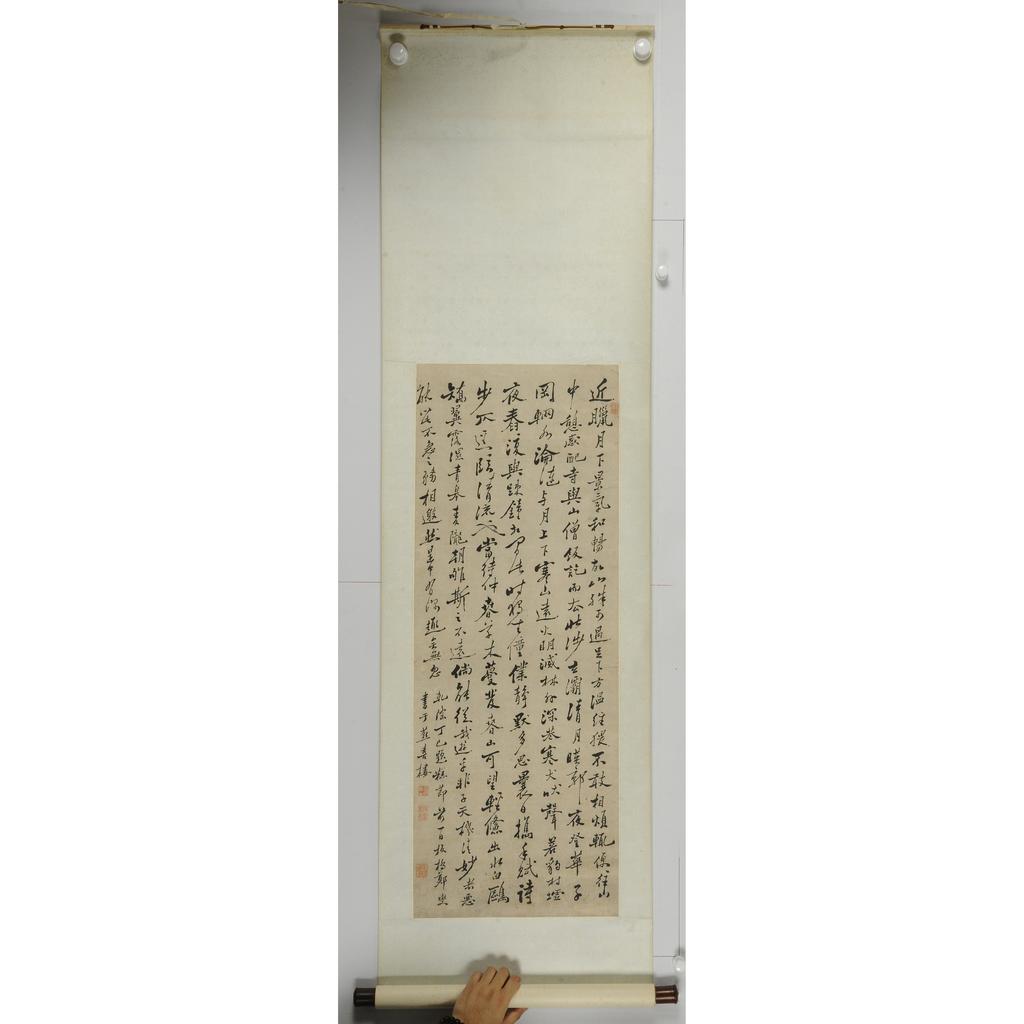 近臘月下景氣和暢故山殊可過足下方溫經猥不敢相煩輒便往山
中憩感配寺與山僧飯訖而去北涉玄灞清月映郭夜登華子
岡輞水淪漣与月上下寒山遠火明滅林外深巷寒犬吠聲若豹村墟
夜舂復與疎鐘相間此时獨坐僮僕靜默多思曩日攜手賦詩
步仄逕臨清流也當待仲春草木蔓發春山可望輕鯈出水白鷗
矯翼露濕青皋麥隴朝雊斯之不遠倘能從我遊乎非子天機清妙者惡
能以不急之務相邀然是中有深趣矣無忽
乾隆丁巳題糕節後一日板橋鄭燮
書于壽樓